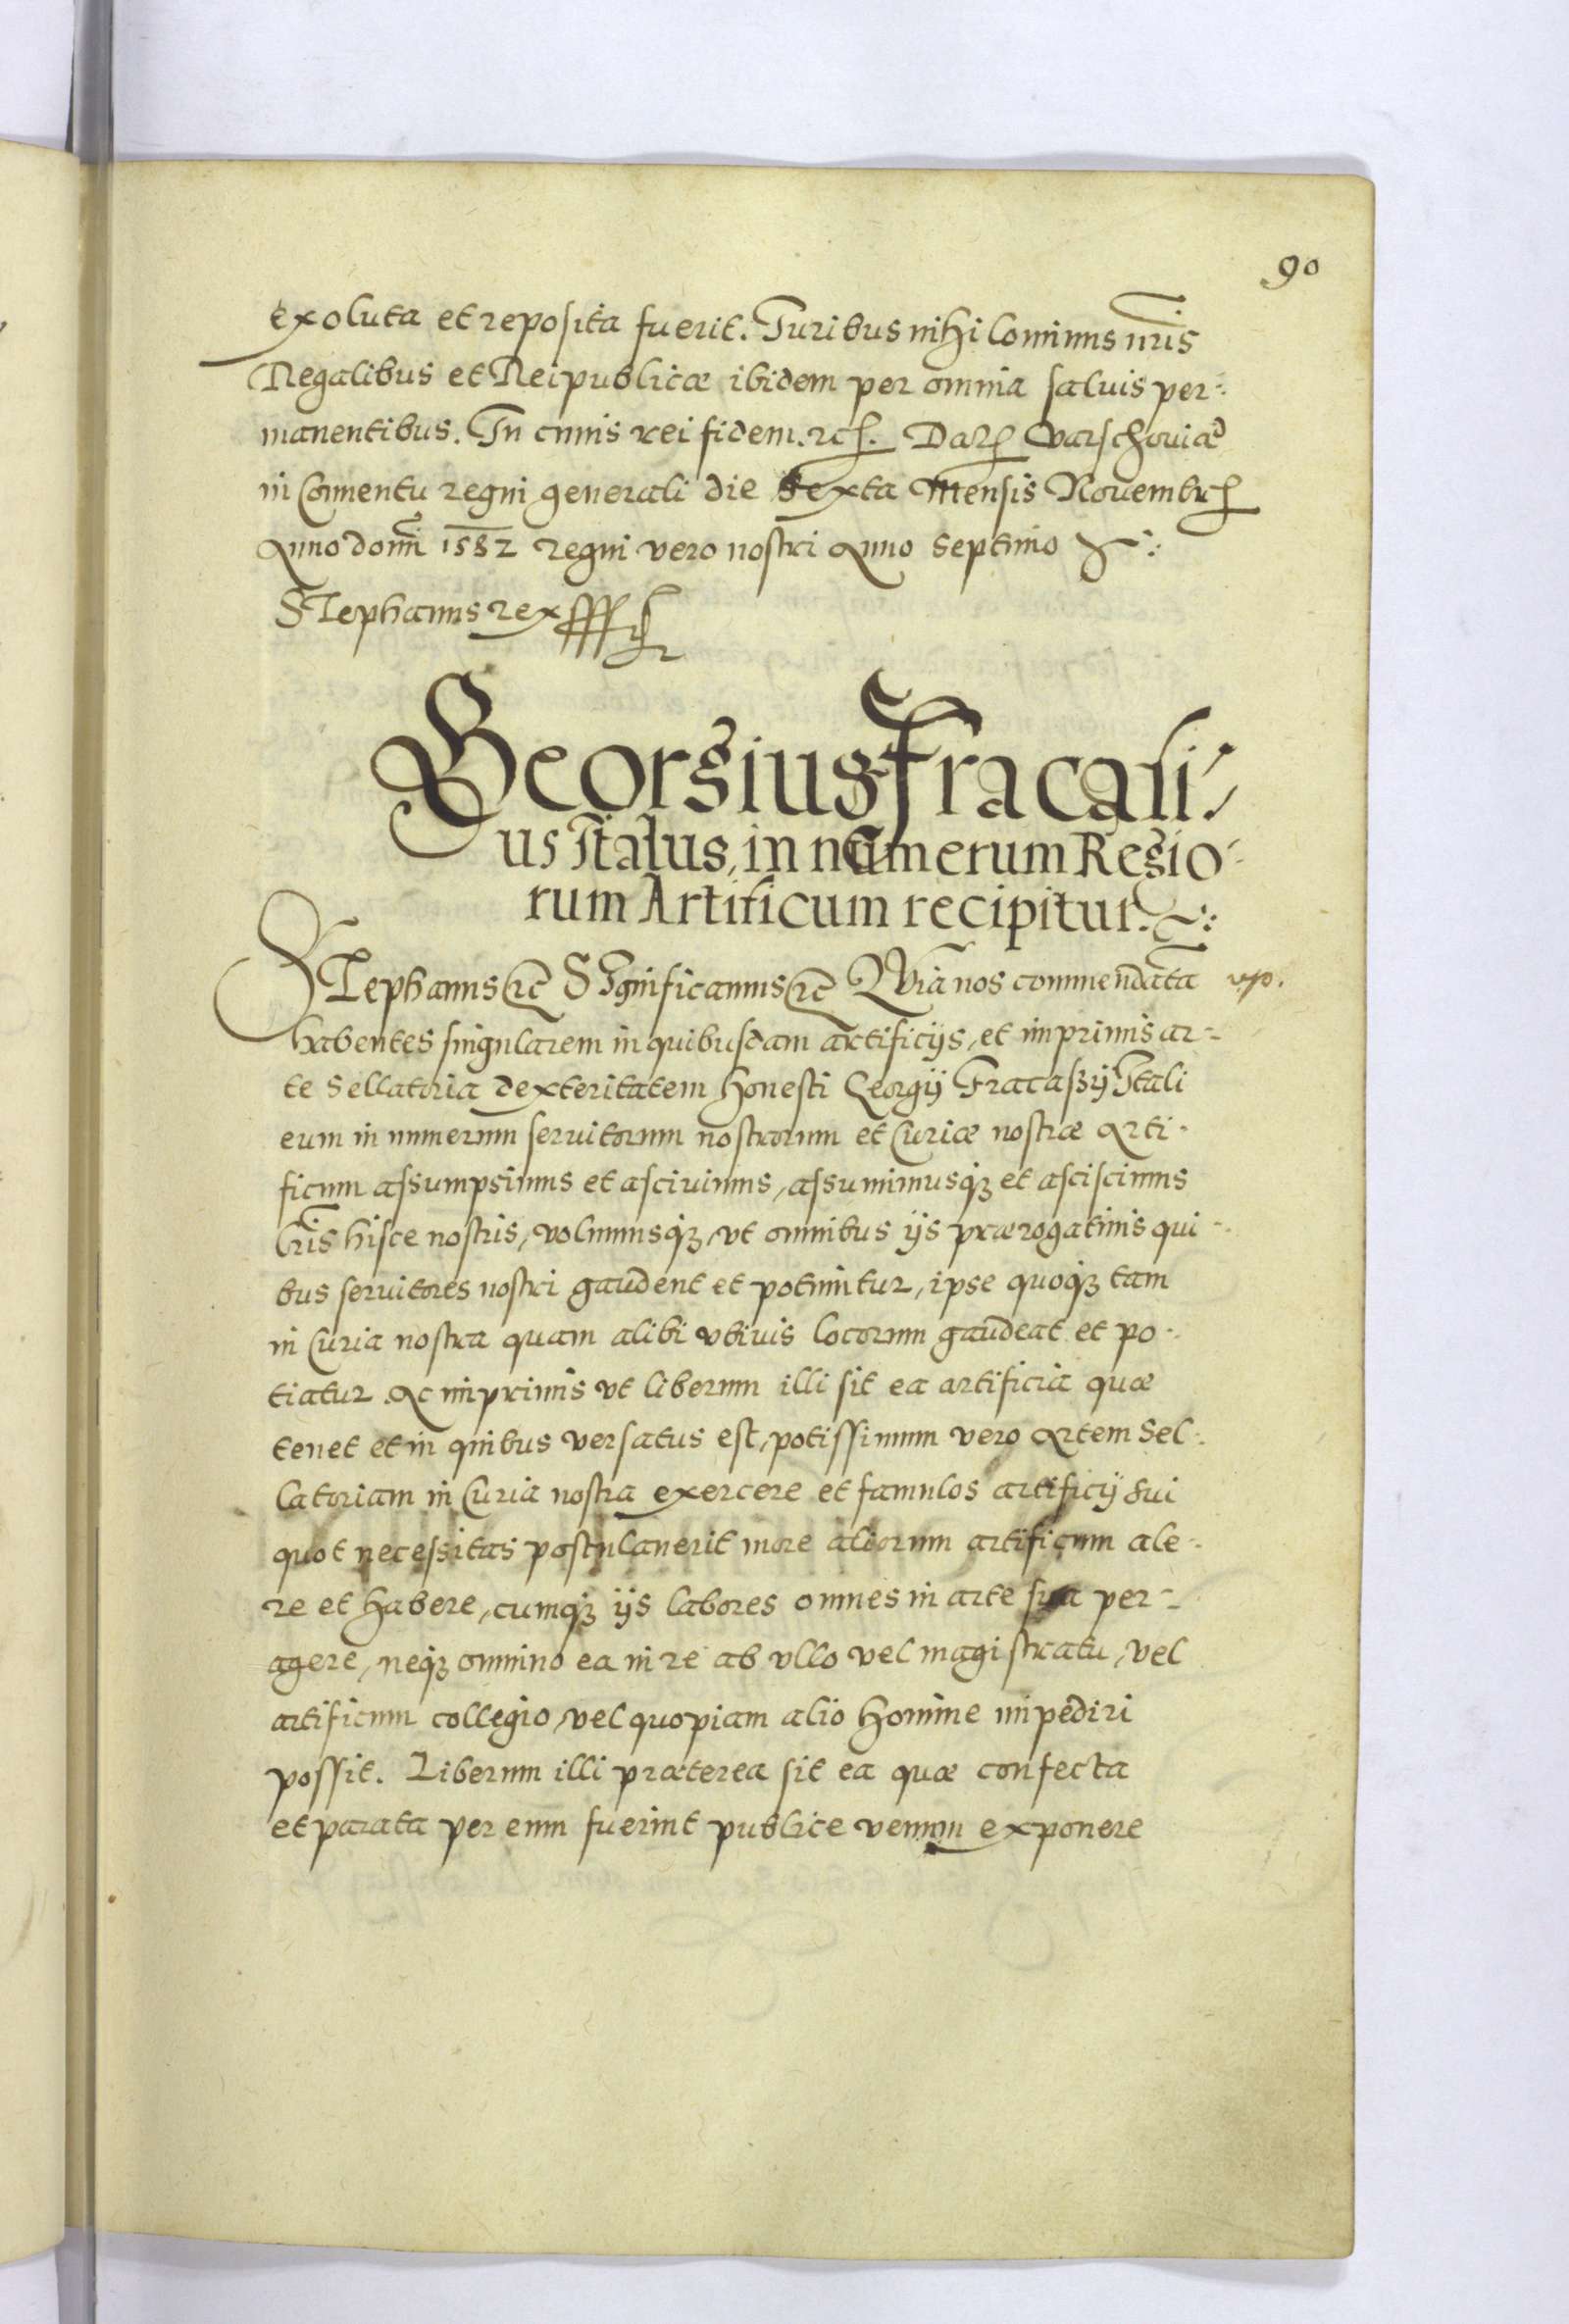 90
exoluta et reposita fuerit. Iuribus nihilominus nris
Regalibus et Reipublicæ ibidem per omnia saluis per-
manentibus. In cuius rei fidem. etc. Dat Varschouiæ
in Conuentu regni generali die Sexta Mensis Nouembr
Anno domi 1582 regni vero nostri Anno Septimo
Stephanus rex
Georgius Fracasi-
us Italus, in numerum Regio-
rum Artificum recipitur.
Stephanus etc Significamus etc Quia nos commendata
habentes singularem in quibusdam artificijs, et imprimis ar-
te Sellatoria dexteritatem Honesti Georgij Fracaszij Itali
eum in numerum seruitorum nostrorum et Curiæ nostræ Arti-
ficum assumpsimus et asciuimus, assumimusq; et asciscimus
lris hisce nostris, volumusq; vt omnibus ijs prærogatiuis qui-
bus seruitores nostri gaudent et potiuntur, ipse quoq; tam
in Curia nostra quam alibi vbiuis locorum gaudeat et po-
tiatur Ac imprimis vt liberum illi sit ea artificia quæ
tenet et in quibus versatus est, potissimum vero Artem Sel-
latoriam in Curia nostra exercere et famulos artificij sui
quot necessitas postulauerit more aliorum artificum ale-
re et habere, cumq; ijs labores omnes in arte sua per-
agere, neq; omnino ea in re ab vllo vel magistratu, vel
artificum collegio, vel quopiam alio Homine impediri
possit. Liberum illi præterea sit ea quæ confecta
et parata per eum fuerint publice venum exponere